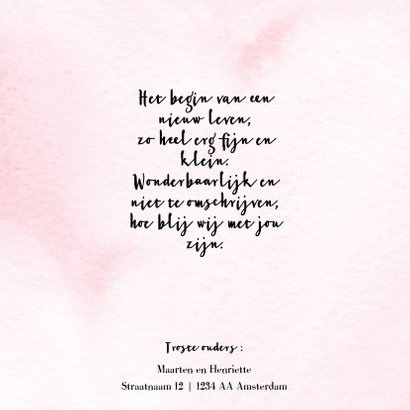 Het begin van een
nieuw leven,
zo heel erg fijn en
klein.
Wonderbaarlijk en
niet te omschrijven,
hoe blij wij met jou
zijn.
Troste ouders :
Maarten en Henriette
Straatnaam 12 | 1234 AA Amsterdam